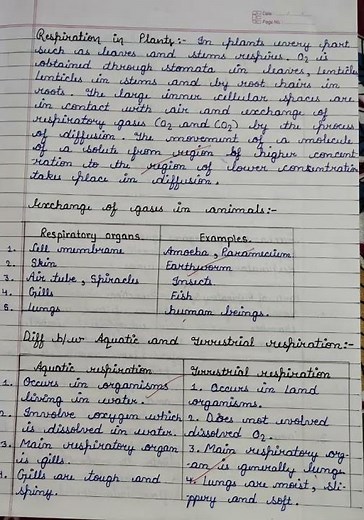 Date
Page No.
Respiration in Plants:- In plants every part
such as leaves and stems respires. O2 is
obtained through stomata in leaves, lenticle
lenticles in stems and by root hairs in
roots. The large inner cellular spaces are
in contact with air and exchange of
respiratory gases (O2 and CO2) by the process
of diffusion. The movement of a molecule
of a solute from region of higher concent
ration to the region of lower concentration
takes place in diffusion.
Exchange of gases in animals:-
Respiratory organs. Examples.
1. Cell membrane Amoeba, Paramecium
2. Skin Earthworm
3. Air tube, Spiracles Insects
4. Gills Fish
5. Lungs human beings.
Diff b/w Aquatic and Terrestrial respiration:-
Aquatic respiration Terrestrial respiration
1. Occurs in organisms 1. Occurs in land
living in water. organisms.
2. Involve oxygen which 2. Does not evolved
is dissolved in water. dissolved O2.
3. Main respiratory organ 3. Main respiratory org-
is gills. -an is generally lungs
4. Gills are tough and 4. Lungs are moist, sli-
spiny. ppery and soft.